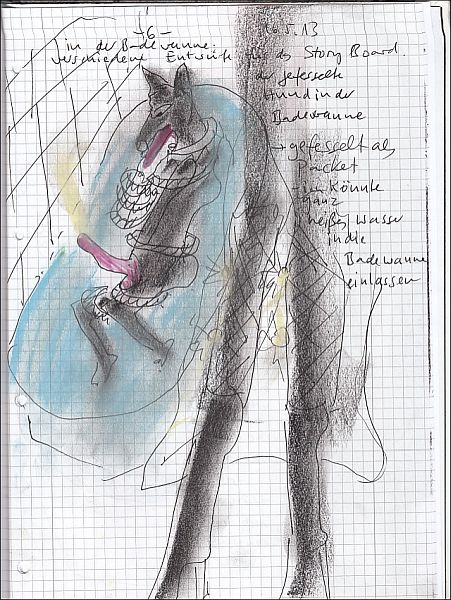 -6- 16.5.13
in der Badewanne:
verschiedene Entwürfe für das Story Board
der gefesselte
Hund in der
Badewanne
→ gefesselt als
Packet
→ ich könnte
ganz
heißes Wasser
in die
Badewanne
einlassen